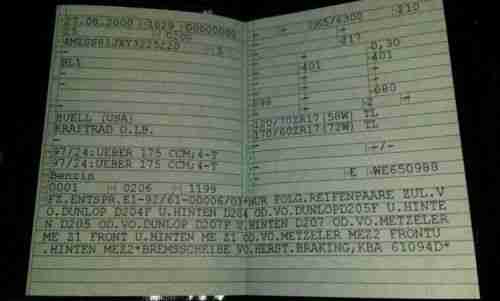 27.06.2000 1029 00000000
210
25 0500
1065/4300
4MZSS81JXY3225220 5
217
0,30
BL1
401
401
680
BUELL (USA)
KRAFTRAD O.LB.
120/70ZR17(58W) TL
170/60ZR17(72W) TL
97/24:UEBER 175 CCM;4-T
97/24:UEBER 175 CCM;4-T
-/-
Benzin
E WE650988
0001 0206 1199
FZ.ENTSPR.E1-92/61-00006/03*NUR FOLG.REIFENPAARE ZUL.V
O.DUNLOP D204F U.HINTEN D204 OD.VO.DUNLOP D205F U.HINTE
N D205 OD.VO.DUNLOP D207F U.HINTEN D207 OD.VO.METZELER
ME Z1 FRONT U.HINTEN ME Z1 OD.VO.METZELER MEZ2 FRONTU
.HINTEN MEZ2*BREMSSCHEIBE VO.HERST.BRAKING,KBA 61094D*